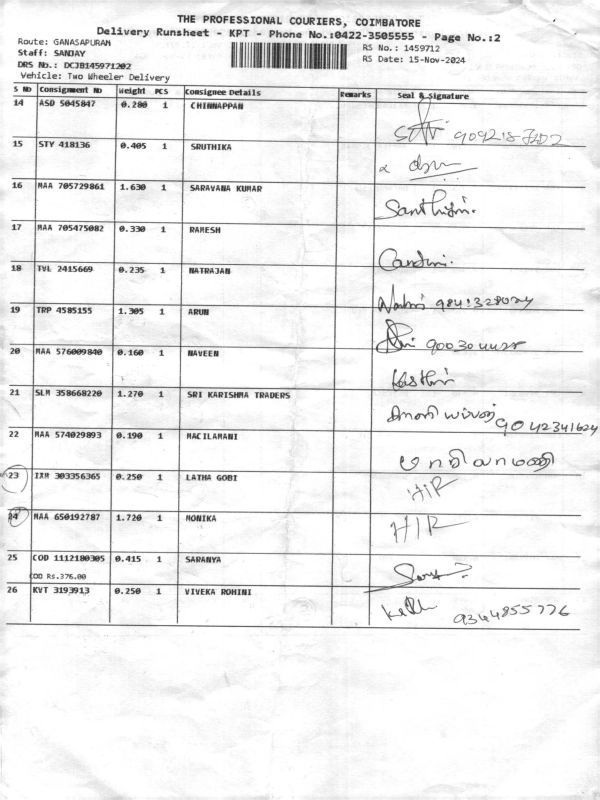 THE PROFESSIONAL COURIERS, COIMBATORE
Delivery Runsheet - KPT - Phone No.:0422-3505555 - Page No.:2
Route: GANASAPURAM
RS No.: 1459712
Staff: SANJAY
RS Date: 15-Nov-2024
DRS No.: DCJB145971202
Vehicle: Two Wheeler Delivery
S NO Consignment NO Weight PCS Consignee Details Remarks Seal & Signature
14 ASD 5045847 0.280 1 CHINNAPPAN
15 STY 418136 0.405 1 SRUTHIKA
16 MAA 705729861 1.630 1 SARAVANA KUMAR
17 MAA 705475082 0.330 1 RAMESH
18 TVL 2415669 0.235 1 NATRAJAN
19 TRP 4585155 1.305 1 ARUN
20 MAA 576009840 0.160 1 NAVEEN
21 SLM 358668220 1.270 1 SRI KARISHMA TRADERS 9042341624
22 MAA 574029893 0.190 1 MACILAMANI
23 IXM 303356365 0.250 1 LATHA GOBI HIR
24 MAA 650192787 1.720 1 MONIKA HIR
25 COD 1112180305 0.415 1 SARANYA
COD Rs.376.00
26 KVT 3193913 0.250 1 VIVEKA ROHINI 9344855776